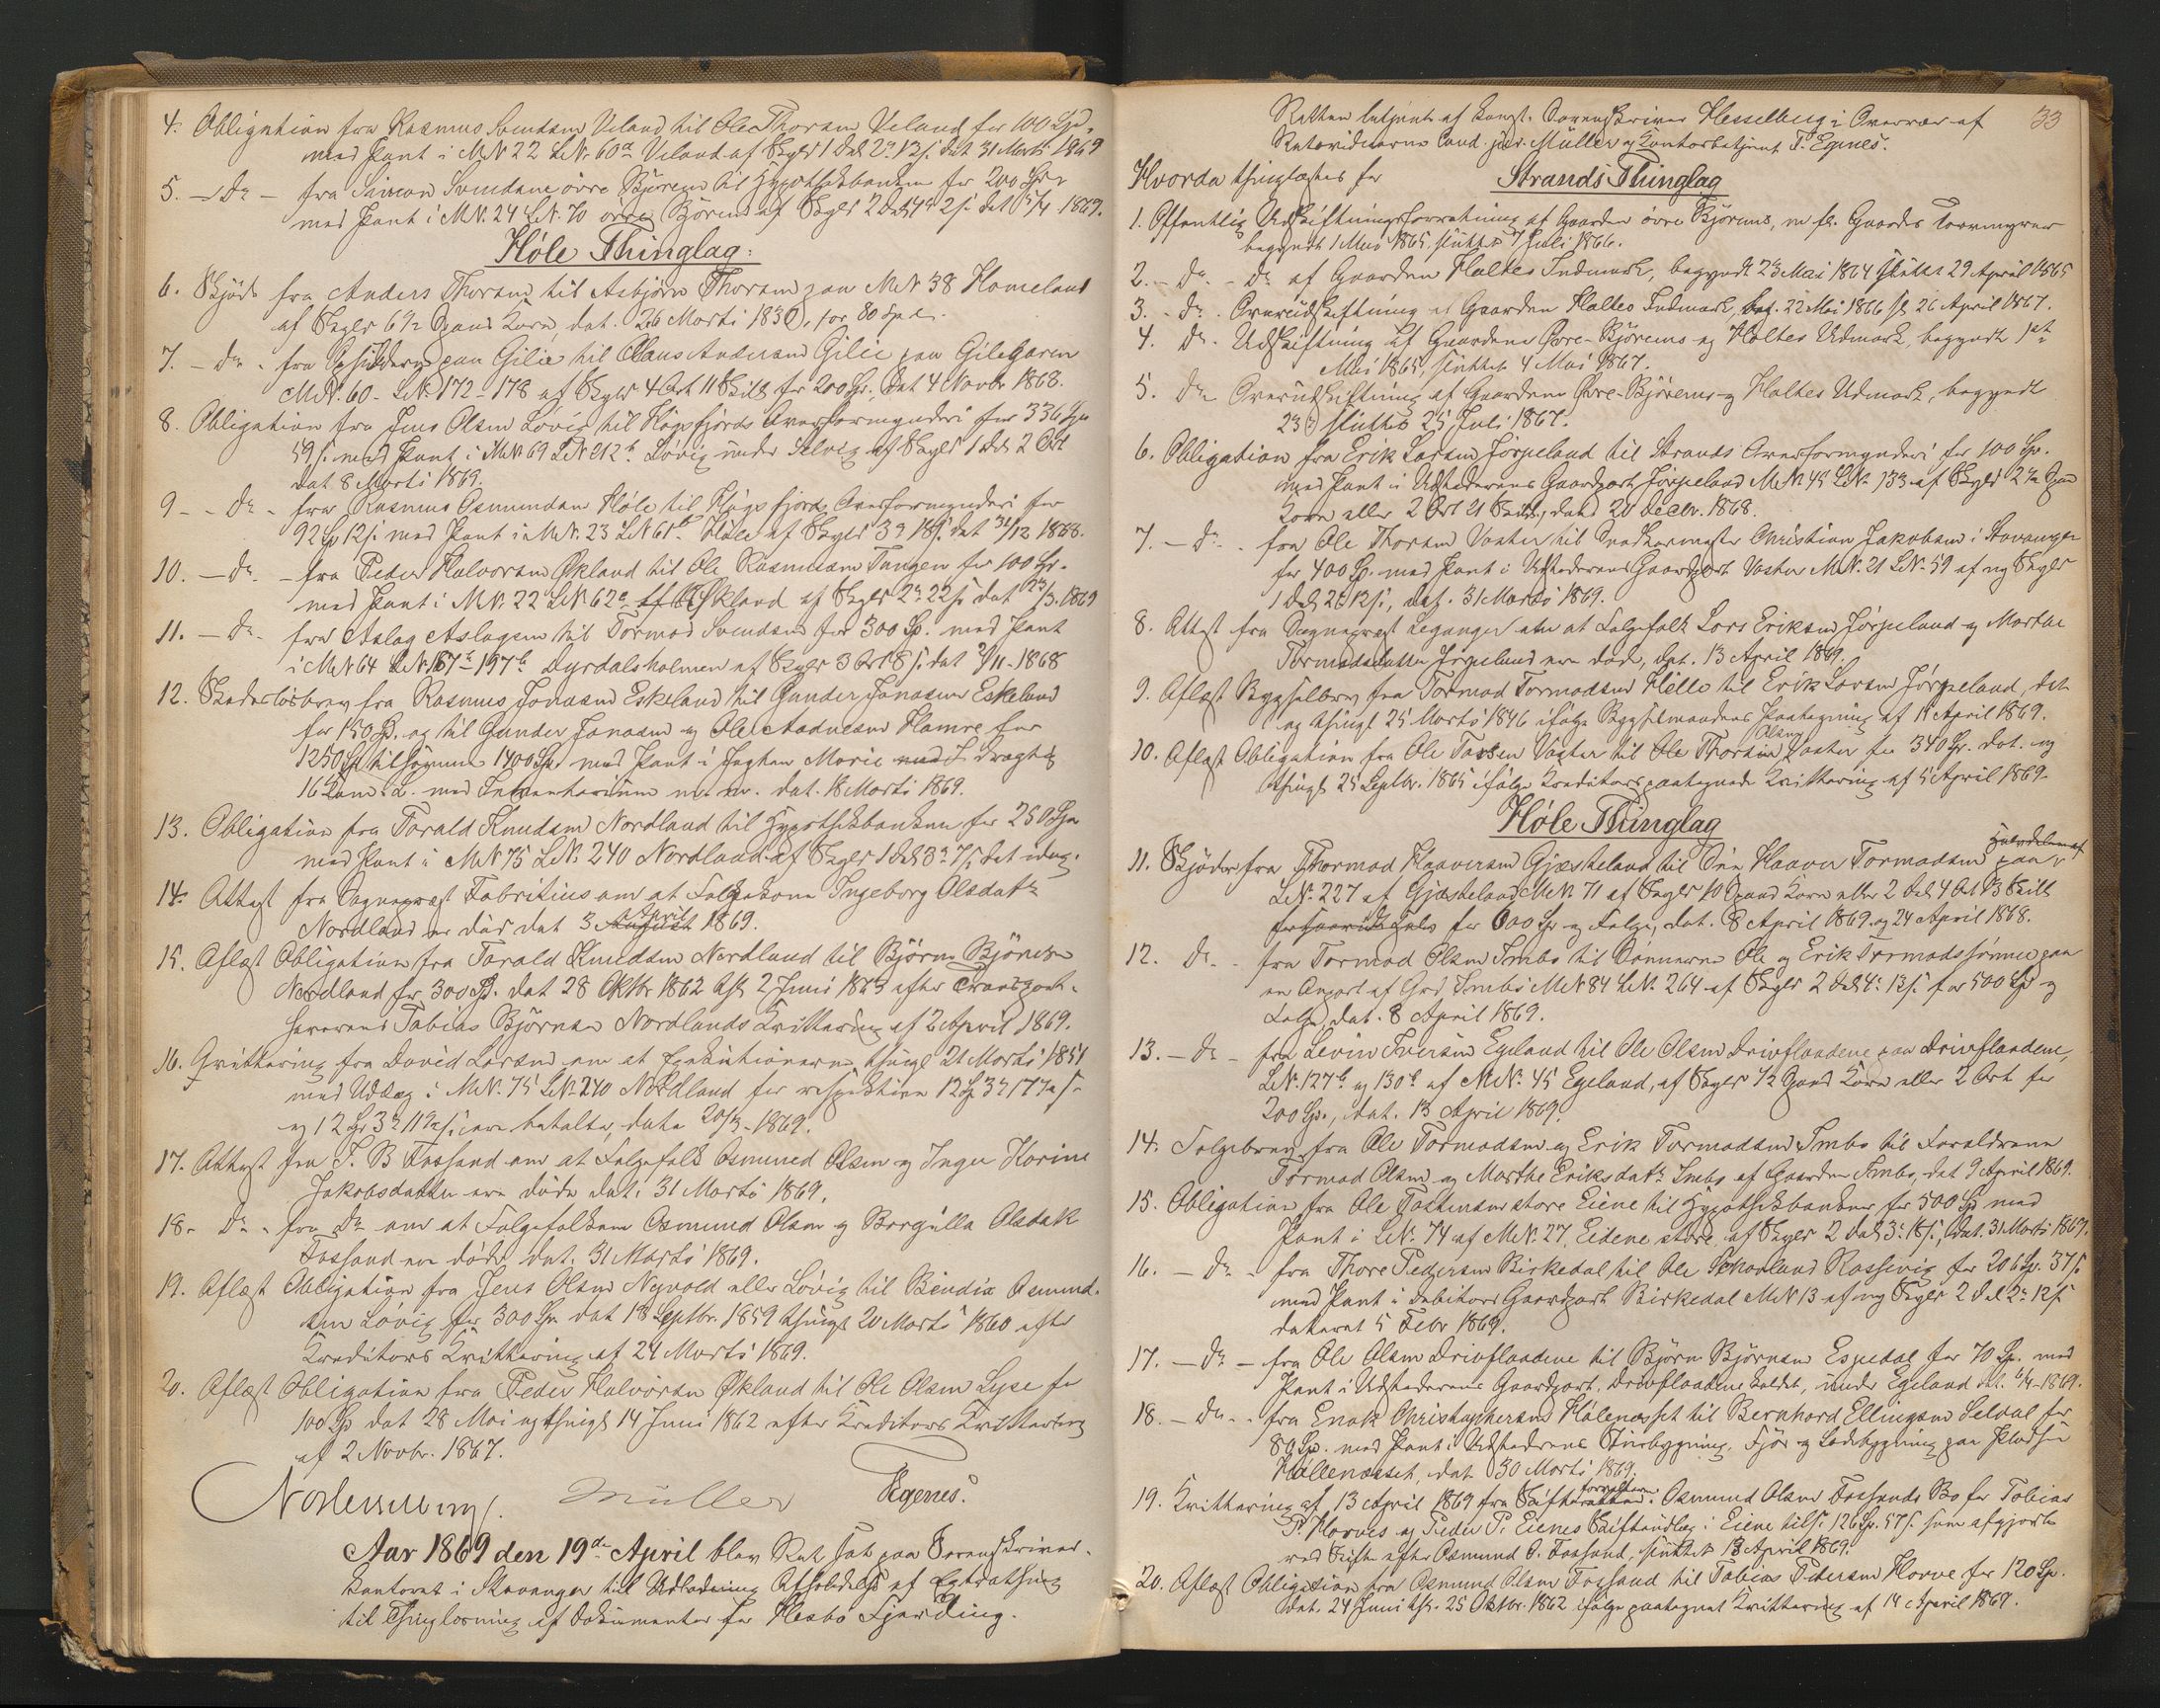 4. Obligation fra Rasmus Svendsen Veland til Ole Thorsen Veland for 100 Spd.
med Pant i M.N. 22 L.N. 60a Veland af Skyld 1 Dal. 2 12 s. dat 31 Marts 1869
5. - Do - fra Simon Svendsen övre Björem til Hypothekbanken for 200 Spd
med Pant i M.N. 24 L.N. 70 övre Björem af Skyld 2 dat 1869.
Høle Thinglag:
6. Skjöde fra Anders Thorsen til Asbjörn Thorsen paa M.N 38 Homeland
af Skyld 6 1/2 Spand Korn, dat. 26 Marts 1830, for 80 Spd.
7. - Do - fra paa Gilje til Claus Andersen Gilje paa Gilegaren
M.N. 60 - L.N. 172-178 af Skyld 4 Ort 11 Skill for 200 Sp., dat 4 Novbr 1868.
8. Obligation fra Jens Olsen Lövig til Högsfjords Overformynderi for 336 Spd
59 s. med Pant i M.N. 69 L.N. 212 b. Lövig under Selvig af Skyld 1 Dal. 2 Ort
dat 8 Marts 1869.
9 - Do - fra Rasmus Osmundsen Høle til Høgsfjords Overformynderi for
92 Sp 12 s. med Pant i M.N. 23 L.N 61 b. Høle af Skyld 3 18 s. dat 31/12 1868.
10. - Do. - fra Peder Halvorsen Økland til Ole Rasmussen Tangen for 100 Sp.
med Pant i M.N. 22 L.N 62 a. Økland af Skyld 2 22 s dat 23/3. 1869
11. - Do - fra Aslag Aslagsen til Tormod Svendsen for 300 Sp. med Pant
i M.N 64 L.N. 187 b - 197 b Dyrdalsholmen af Skyld 3 Ort 8 s. dat 2/11 - 1868
12. Skadeslösbrev fra Rasmus Jonasen Eskeland til Gunder Jonasen Eskeland
for 150 Sp. og til Gunder Jonasen og Ole Aadnesen Hamre for
1250 Sp tilsammen 1400 Sp. med Pant i Jagten Marie drægtig
16 Com. L. med Inventarium m.m. dat. 18 Marts 1869.
13. Obligation fra Torald Knudsen Nordland til Hypothekbanken for 250 Spd
med Pant i M.N 75 L.N. 240 Nordland af Skyld 1 dal 3 7 s, dat
14. Attest fra Sogneprest Fabritius om at Folgekone Ingeborg Olsdatr
Nordland er död dat 3 April 1869.
15. Aflæst Obligation fra Torald Knudsen Nordland til Björn Björnsen
Nordland for 300 Sp. dat 28 Oktbr 1862 thl. 2 Juni 1863 efter Transport-
haverens Tobias Björnsen Nordlands Kvittering af 2 April 1869.
16. Qvittering fra David Larsen om at Exekutionerne, thingl. 21 Marts 1851
med Udlæg i M.N. 75 L.N. 240 Nordland for respektive 12 Sp 3
og 12 Sp 3 ere betalte, dato 20/3 - 1869.
17. Attest fra T. B Fossand om at Folgefolk Osmund Olsen og Inger Korine
Jakobsdatter ere döde dat. 31 Marts 1869.
18 - Do - fra Do om at Folgefolkene Osmund Olsen og Borgilla Olsdatr
Fossand ere döde, dat. 31 Marts 1869.
19. Aflæst Obligation fra Jens Olsen Nyvold eller Lövig til Bendix Osmund-
sen Lövig for 300 Spd dat 18 Septbr. 1859 thingl 20 Marts 1860 efter
Kreditors Kvittering af 24 Marts 1869.
20. Aflæst Obligation fra Peder Halvorsen Økland til Ole Olsen Lyse for
100 Sp dat 28 Mai og thingl 14 Juni 1862 efter Kreditors Kvittering
af 2 Novbr. 1867.
Müller Egenes.
Aar 1869 den 19de April blev Ret sat paa Sorenskriver-
kontoret i Stavanger til Afholdelse af Extrathing
til Thinglæsning af Dokumenter for Hesbö Fjerding.
33
Retten betjent af Const. Sorenskriver Hesselberg i Overvær af
Retsvidnerne Cand. jur. Müller og Kontorbetjent T. Egenes.
Hvorda thinglæstes for Strands Thinglag
1. Offentlig Udskiftningsforretning af Gaarden övre Björems, m. fl. Gaarde
begyndt 1 Mai 1865, sluttet 7 Juli 1866.
2. - Do - Do af Gaarden Holtes Indmark, begyndt 23 Mai 1864 sluttet 29 April 1865
3. - Do. Overudskiftning af Gaarden Holtes Indmark, beg. 22 Mai 1866 sl. 26 April 1867.
4. Do. Udskiftning af Gaardene Övre-Björems og Holtes Udmark, begyndt 1st
Mai 1865, sluttet 4 Mai 1867.
5. Do Overudskiftning af Gaardene Övre-Björems og Holtes Udmark, begyndt
23 sluttet 25 Juli 1867.
6. Obligation fra Erik Larsen Jörpeland til Strands Overformynderi for 100 Sp.
med Pant i Udstederens Gaardpart Jörpeland M.N. 45 L.N. 133 af Skyld 2 1/2 Spd
Korn eller 2 Ort 21 Skill, dat 20 Decbr. 1868.
7. - Do - fra Ole Thorsen Vaster til Christian Jakobsen i Stavanger
for 400 Sp. med Pant i Udstederens Gaardpart Vaster M.N. 21 L.N. 59 af ny Skyld
1 Dal 2 12 s., dat. 31 Marts 1869.
8. Attest fra Sogneprest Leganger om at Folgefolk Lars Eriksen Jörpeland og Marthe
Tormodsdatter Jörpeland ere döde, dat. 13 April 1869.
9. Aflæst Bygselbrev fra Tormod Tormodsen Helle til Erik Larsen Jörpeland, dat.
og thingl 25 Marts 1846 ifølge Bygselmandens Paategning af 11 April 1869.
10. Aflæst Obligation fra Ole Tossen Vaster til Ole Thorsen Olsen Vaster for 340 Sp. dat. og
thingl 25 Septbr. 1865 ifølge Kreditors paategnede Kvittering af 5 April 1869.
Høle Thinglag
11. Skjöde fra Thormod Haaversen Gjæsteland til Sön Haaver Tormodsen paa Halvdelen af
L.N. 227 af Gjæsteland M.N. 71 af Skyld 10 Spand Korn eller 2 Dal 4 Ort 13 Skill
for 600 Sp og Folge, dat. 8 April 1869 og 24 April 1868.
12. Do - fra Tormod Olsen Imbs til Sönnerne Ole og Erik Tormodssönner paa
en Anpart af Grd Imbs M.N 84 L.N. 264 af Skyld 2 Dal 4 13 s. for 500 Sp og
Folge, dat. 8 April 1869.
13. - Do - fra Levin Iversen Egeland til Ole Olsen Drivflaadene paa Drivflaadene,
L.N. 127 b. og 130 b af M.N. 45 Egeland, af Skyld 1/2 Spand Korn eller 2 Ort for
200 Sp., dat. 13 April 1869.
14. Folgebrev fra Ole Tormodsen og Erik Tormodsen Imbs til Foreldrene
Tormod Olsen og Marthe Eriksdatr Imbs af Gaarden Imbs, dat 9 April 1869.
15. Obligation fra Ole Tostensen store Eiene til Hypothekbanken for 500 Sp med
Pant i L.N. 74 af M.N. 27, Eidene store af Skyld 2 Dal 3 18 s., dat. 31 Marts 1869.
16. - Do - fra Thore Pedersen Birkedal til Ole Skarland Rossevig for 206 Sp. 37 s.
med Pant i Debitors Gaardpart Birkedal M.N 13 af ny Skyld 2 Dal 2 12 s
dateret 5 Febr 1869.
17. - Do - fra Ole Olsen Drivflaadene til Björn Björnsen Espedal for 70 Sp. med
Pant i Udstederens Gaardpart, Drivflaadene kaldet, under Egeland dat. 6/4 - 1869.
18. - Do - fra Enok Christophersen Hölenæsset til Bernhard Ellingsen Selval for
80 Sp. med Pant i Udstederens Vaanebygning, Fjøs og Ladebygning paa Pladsen
Höllenæsset, dat 30 Marts 1869.
19. Kvittering af 13 April 1869 fra Skifteforvalteren i Osmund Olsen Fossands Bo for Tobias
P. Horves og Peder P. Eienes Skifteudlæg i Eiene tils. 126 Sp. 57 s. som afgjorte
ved Skifte efter Osmund O. Fossand, sluttet 13 April 1869.
20. Aflæst Obligation fra Osmund Olsen Fossand til Tobias Pedersen Horve for 120 Sp.
dat. 24 Juni thl. 25 Oktbr. 1862 ifølge paategnet Kvittering af 14 April 1869.